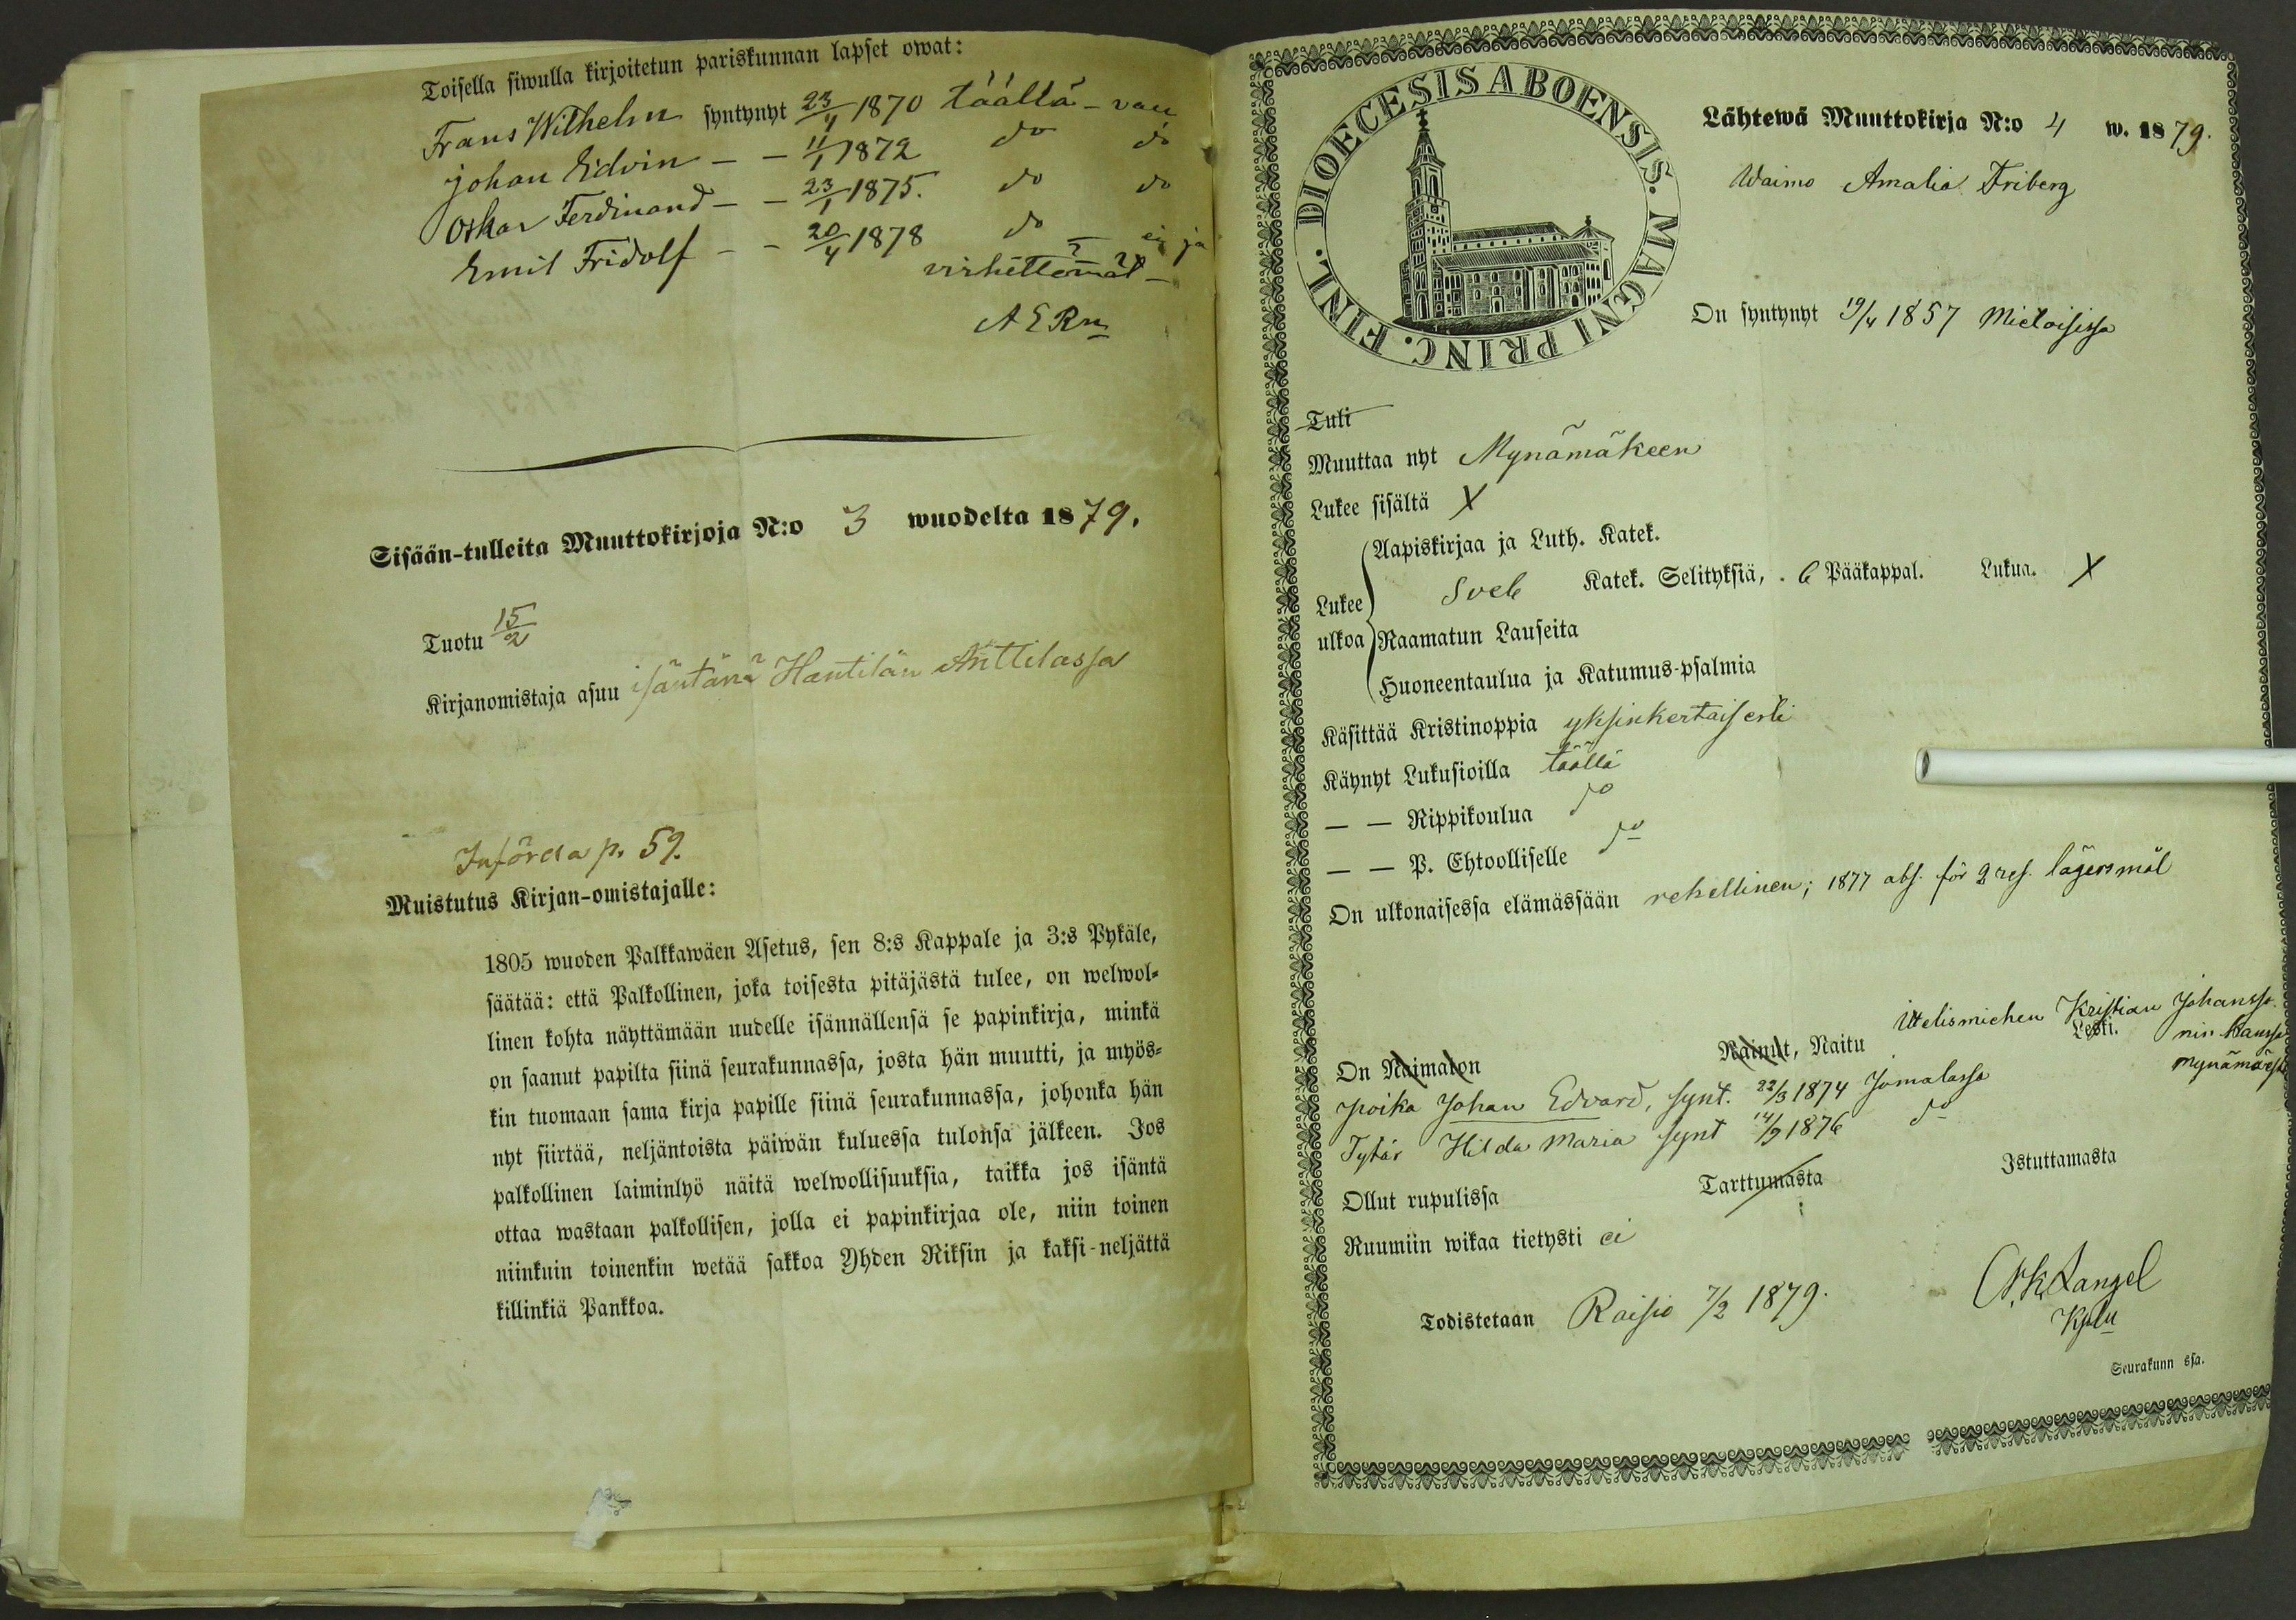 Toisella siwulla kirjoitetun pariskunnan lapset owat:
Frans Wilhelm syntynyt 23/4 1870 täällä - vau
Johan Edvin - - 11/1 1872 do do
Oskar Ferdinand - - 23/1 1875. do do
Emil Fridolf - - 20/4 1878 do - ei ja
virhettömät -
A E Rn
Sisään-tulleita Muuttokirjoja N:o 3 wuodelta 1879.
Tuotu 15/2
Kirjanomistaja asuu isäntänä Hantilän Anttilassa
Införda p. 59.
Muistutus Kirjan-omistajalle:
1805 wuoden Palkkawäen Asetus, sen 8:s Kappale ja 3:s Pykäle,
säätää: että Palkollinen, joka toisesta pitäjästä tulee, on welwol-
linen kohta näyttämään uudelle isännällensä se papinkirja, minkä
on saanut papilta siinä seurakunnassa, josta hän muutti, ja myös-
kin tuomaan sama kirja papille siinä seurakunnassa, johonka hän
nyt siirtää, neljäntoista päiwän kuluessa tulonsa jälkeen. Jos
palkollinen laiminlyö näitä welwollisuuksia, taikka jos isäntä
ottaa wastaan palkollisen, jolla ei papinkirjaa ole, niin toinen
niinkuin toinenkin wetää sakkoa Yhden Riksin ja kaksi-neljättä
killinkiä Pankkoa.
DIOECESIS ABOENSIS. MAGNI PRINC. FINL.
Lähtewä Muuttokirja N:o 4 w. 1879.
Waimo Amalia Friberg
On syntynyt 19/4 1857 Mietoisissa
Tuli
Muuttaa nyt Mynämäkeen
Lukee sisältä X
Aapiskirjaa ja Luth. Katek.
Lukee Sveb Katek. Selityksiä, . 6 Pääkappal. Lukua. X
ulkoa Raamatun Lauseita
Huoneentaulua ja Katumus-psalmia
Käsittää Kristinoppia yksinkertaisesti
Käynyt Lukusioilla täällä
— — Rippikoulua do
— — P. Ehtoolliselle do
On ulkonaisessa elämässään rehellinen; 1877 abs. för 2 res. lägersmål
On Naimaton Nainut, Naitu Itelismiehen Kristian Johansso-
Leski. nin kanssa
Mynämäest
Poika Johan Edvard, synt. 22/3 1874 Jomalassa
Tytär Hilda Maria synt 14/9 1876 do
Ollut rupulissa Tarttumasta Istuttamasta
Ruumiin wikaa tietysti ei
Todistetaan Raisio 7/2 1879.
Langel
Kpln
Seurakunn ssa.